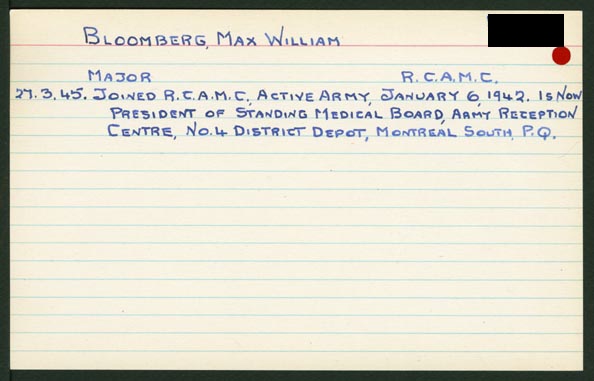 BLOOMBERG, MAX WILLIAM
MAJOR R.C.A.M.C.
27.3.45. JOINED R.C.A.M.C., ACTIVE ARMY, JANUARY 6, 1942. IS NOW
PRESIDENT OF STANDING MEDICAL BOARD, ARMY RECEPTION
CENTRE, NO.4 DISTRICT DEPOT, MONTREAL SOUTH, P.Q.